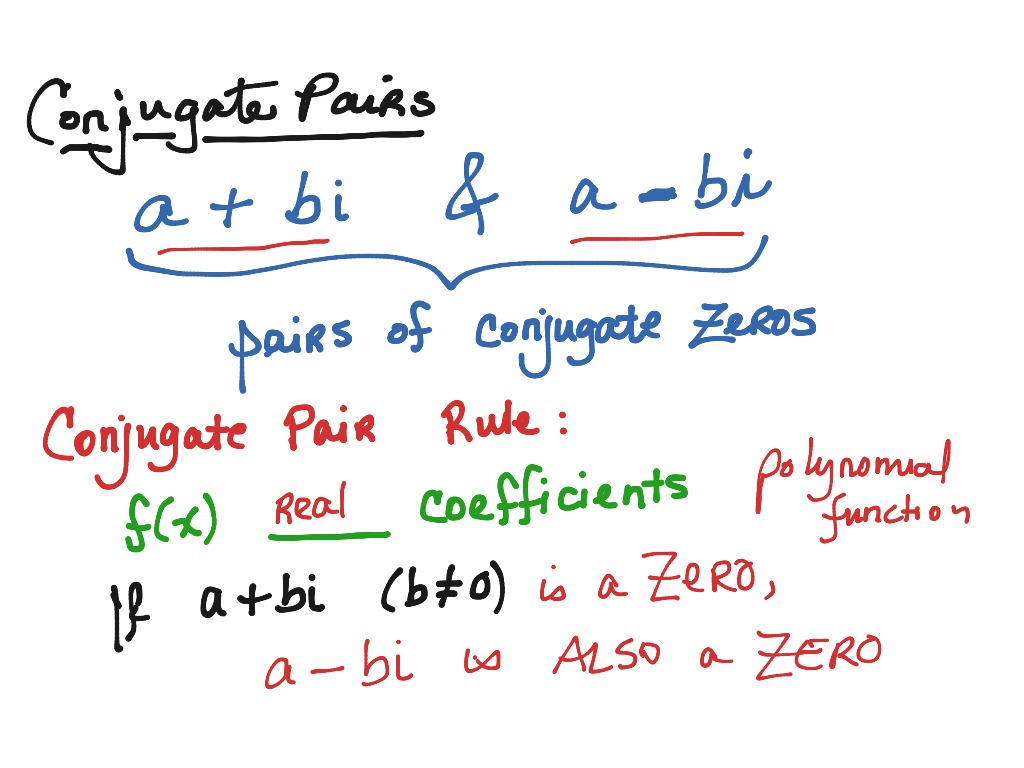 Conjugate Pairs
a + bi & a - bi
pairs of conjugate Zeros
Conjugate Pair Rule:
f(x) Real coefficients polynomial function
If a+bi (b≠0) is a ZERO,
a - bi is ALSO a ZERO